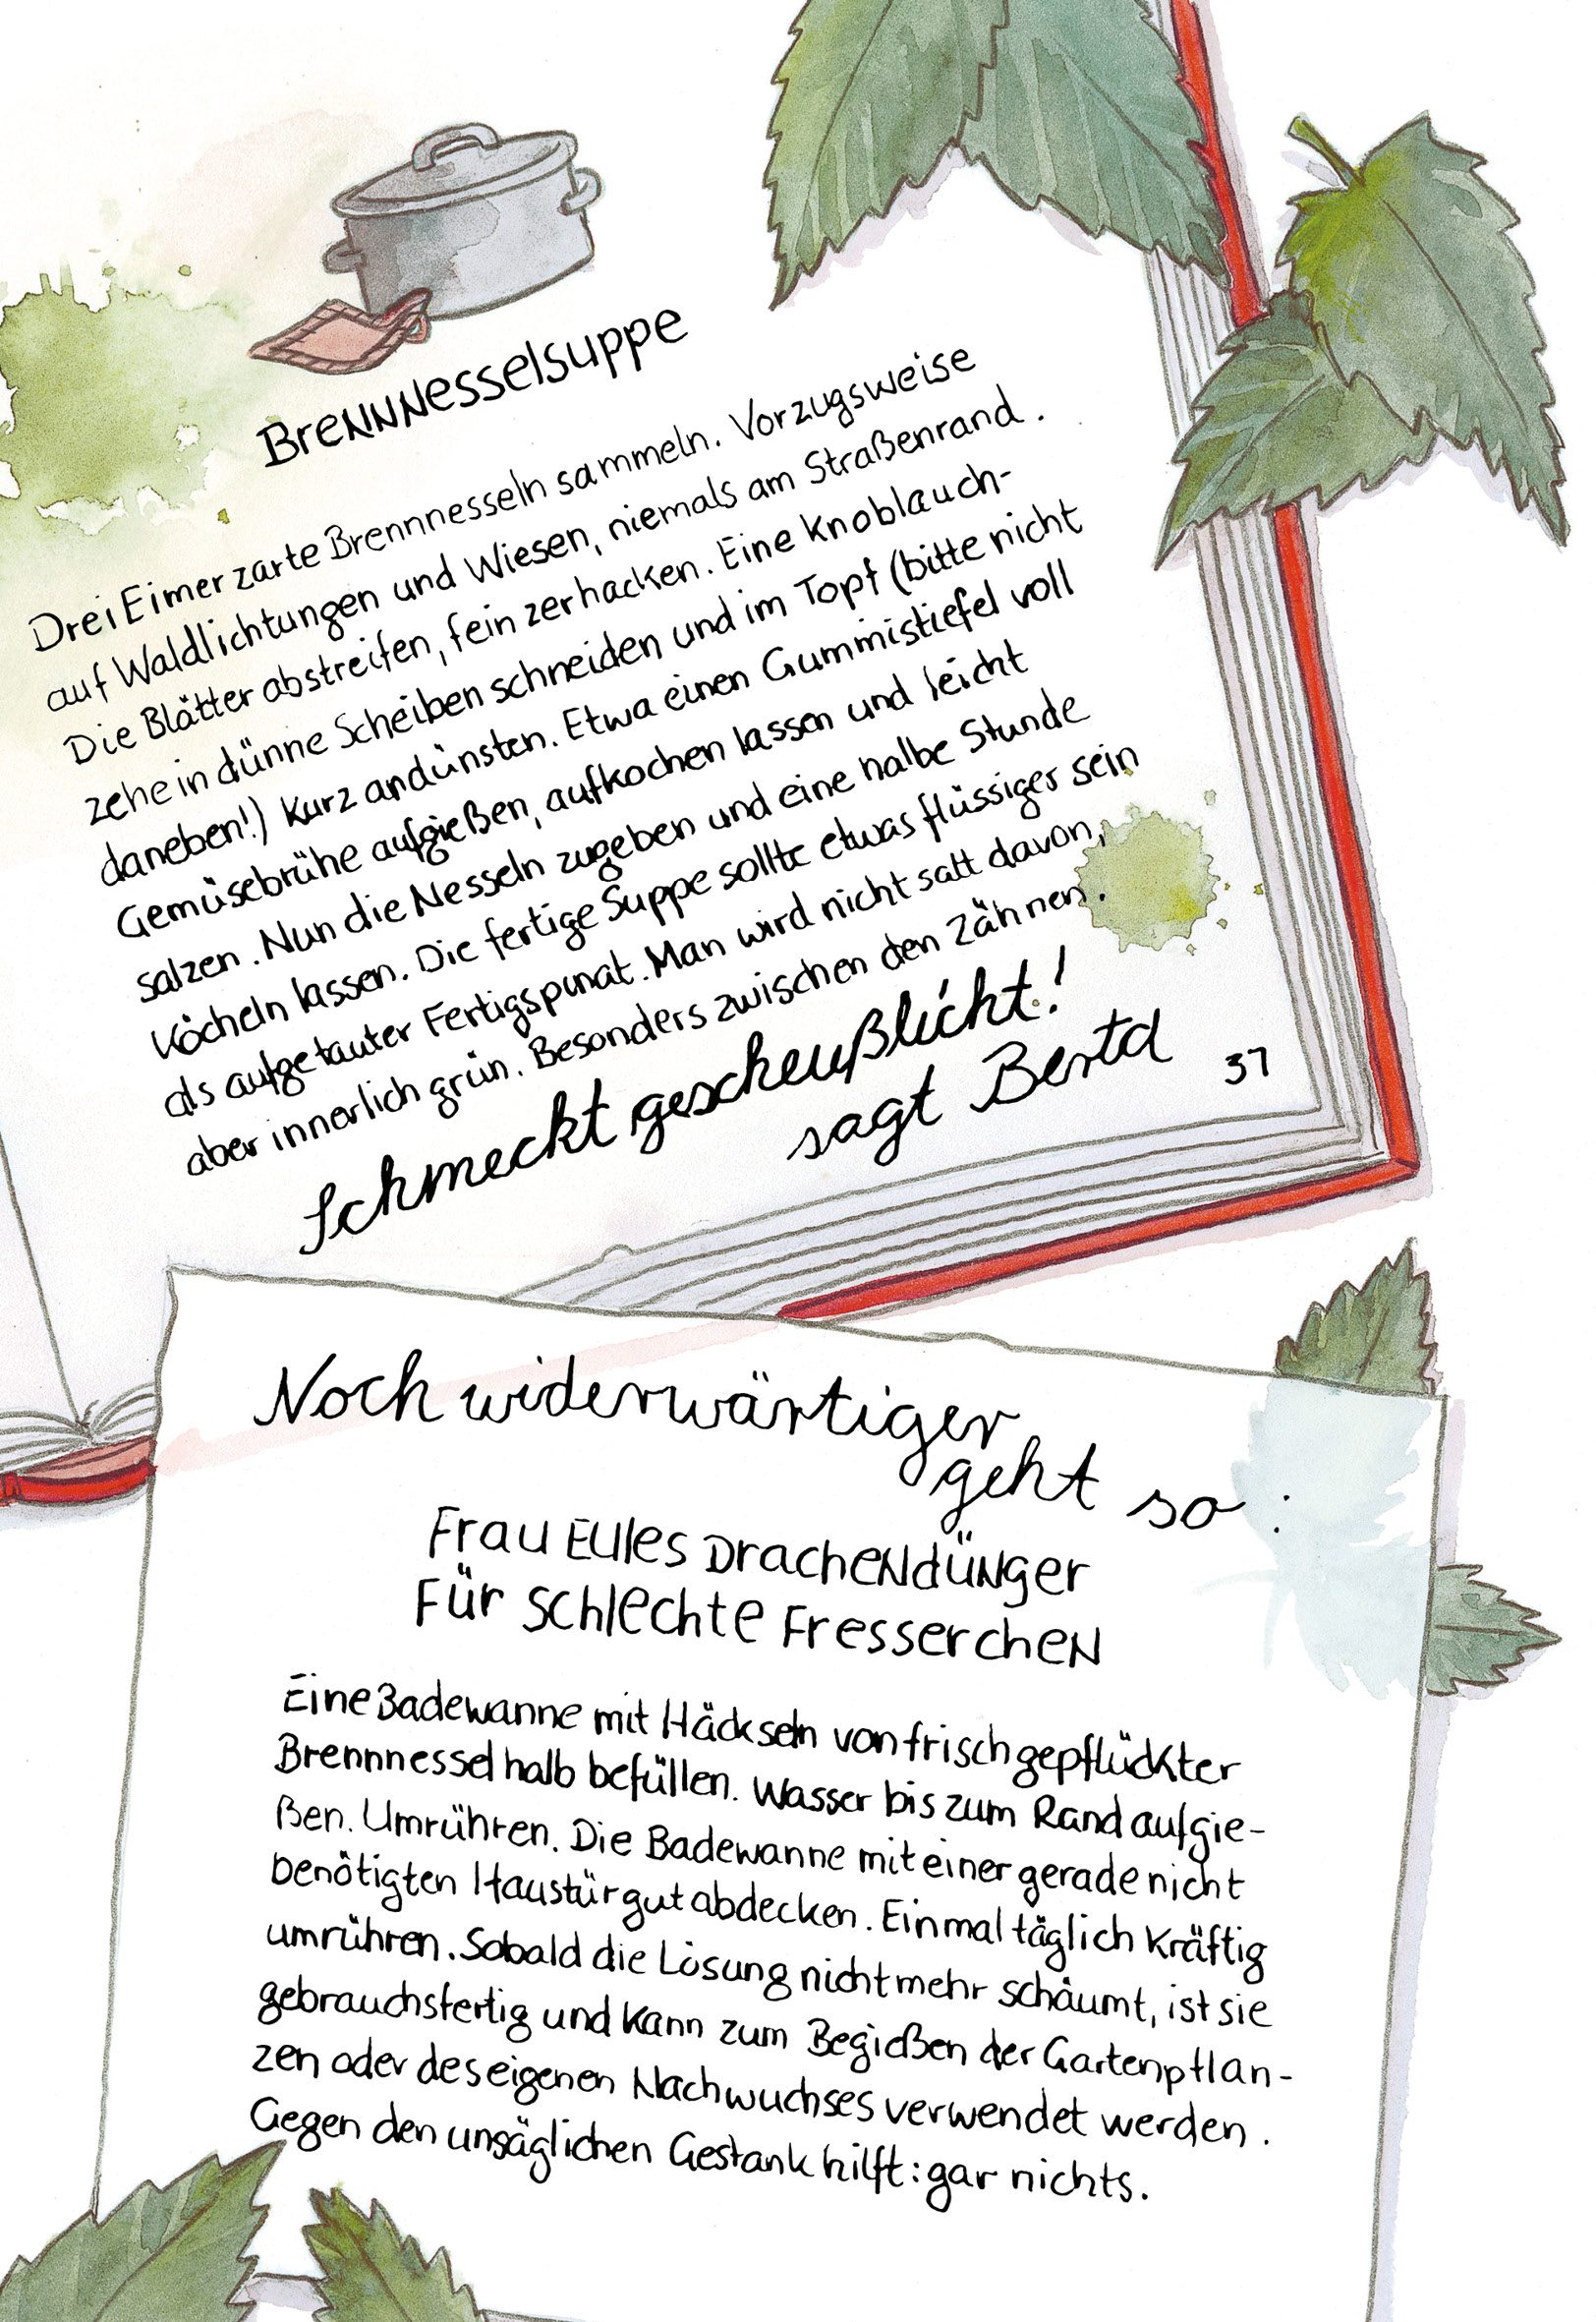 Brennnesselsuppe
Drei Eimer zarte Brennnesseln sammeln. Vorzugsweise
auf Waldlichtungen und Wiesen, niemals am Straßenrand.
Die Blätter abstreifen, fein zerhacken. Eine Knoblauch-
zehe in dünne Scheiben schneiden und im Topf (bitte nicht
daneben!) kurz andünsten. Etwa einen Gummistiefel voll
Gemüsebrühe aufgießen, aufkochen lassen und leicht
salzen. Nun die Nesseln zugeben und eine halbe Stunde
köcheln lassen. Die fertige Suppe sollte etwas flüssiger sein
als aufgetauter Fertigspinat. Man wird nicht satt davon,
aber innerlich grün. Besonders zwischen den Zähnen.
Schmeckt gescheußlicht!
sagt Berta
37
Noch widerwärtiger
geht so:
Frau Eules Drachendünger
Für schlechte Fresserchen
Eine Badewanne mit Häckseln von frisch gepflückter
Brennnessel halb befüllen. Wasser bis zum Rand aufgie-
ßen. Umrühren. Die Badewanne mit einer gerade nicht
benötigten Haustür gut abdecken. Einmal täglich kräftig
umrühren. Sobald die Lösung nicht mehr schäumt, ist sie
gebrauchsfertig und kann zum Begießen der Gartenpflan-
zen oder des eigenen Nachwuchses verwendet werden.
Gegen den unsäglichen Gestank hilft: gar nichts.